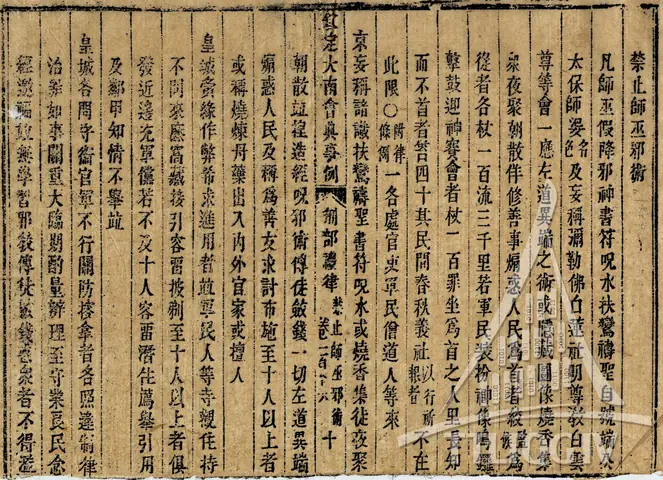 禁止師巫邪術
凡師巫假降邪神書符呪水扶鸞禱聖自號端公
太保師婆名色及妄稱彌勒佛白蓮社明尊教白雲
尊等會一應左道異端之術或隱藏圖像燒香集
衆夜聚朝散佯修善事煽惑人民為首者絞監候為
從者各杖一百流三千里若軍民裝扮神像鳴鑼
擊鼓迎神賽會者杖一百罪坐為首之人里長知
而不首者笞四十其民間春秋義社以行祈報者不在
此限〇附律條例一各處官吏軍民僧道人等來
京妄稱諳識扶鸞禱聖書符呪水或燒香集徒夜聚
欽定大南會典事例 刑部禮律 禁止師巫邪術 十
朝散並捏造經呪邪術傳徒斂錢一切左道異端
煽惑人民及稱為善友求討布施至十人以上者
或稱燒煉丹藥出入內外官家或擅入
皇城夤緣作弊希求進用者並軍民人等寺觀住持
不問來歷窩藏接引容留披剃至十人以上者俱
發近邊充軍儻若不及十人容留潛住薦舉引用
及鄰甲知情不舉並
皇城各門守衛官軍不行關防搜拿者各照違制律
治罪如事關重大臨期酌量辦理至守業良民念
經邀福並無學習邪教傳徒斂錢惑衆者不得濫